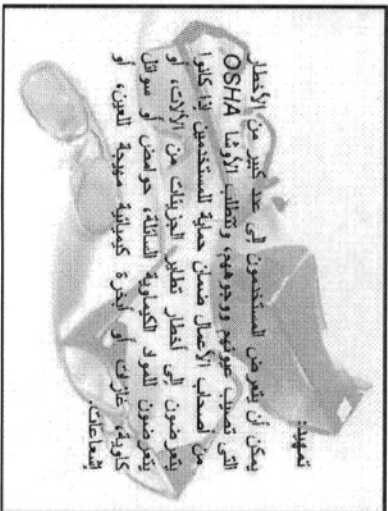 تمهيد:
يمكن أن يتعرض المستخدمون إلى عدد كبير من الأخطار
التي تصيب عيونهم ووجوههم، وتتطلب الأوشا OSHA
من أصحاب الأعمال ضمان حماية للمستخدمين إذا كانوا
يتعرضون إلى أخطار تطاير الجزيئات من الآلات، أو
يتعرضون للمواد الكيماوية السائلة، حوامض أو سوائل
كاوية، غازات أو أبخرة كيميائية مهيجة للعين، أو
إشعاعات.